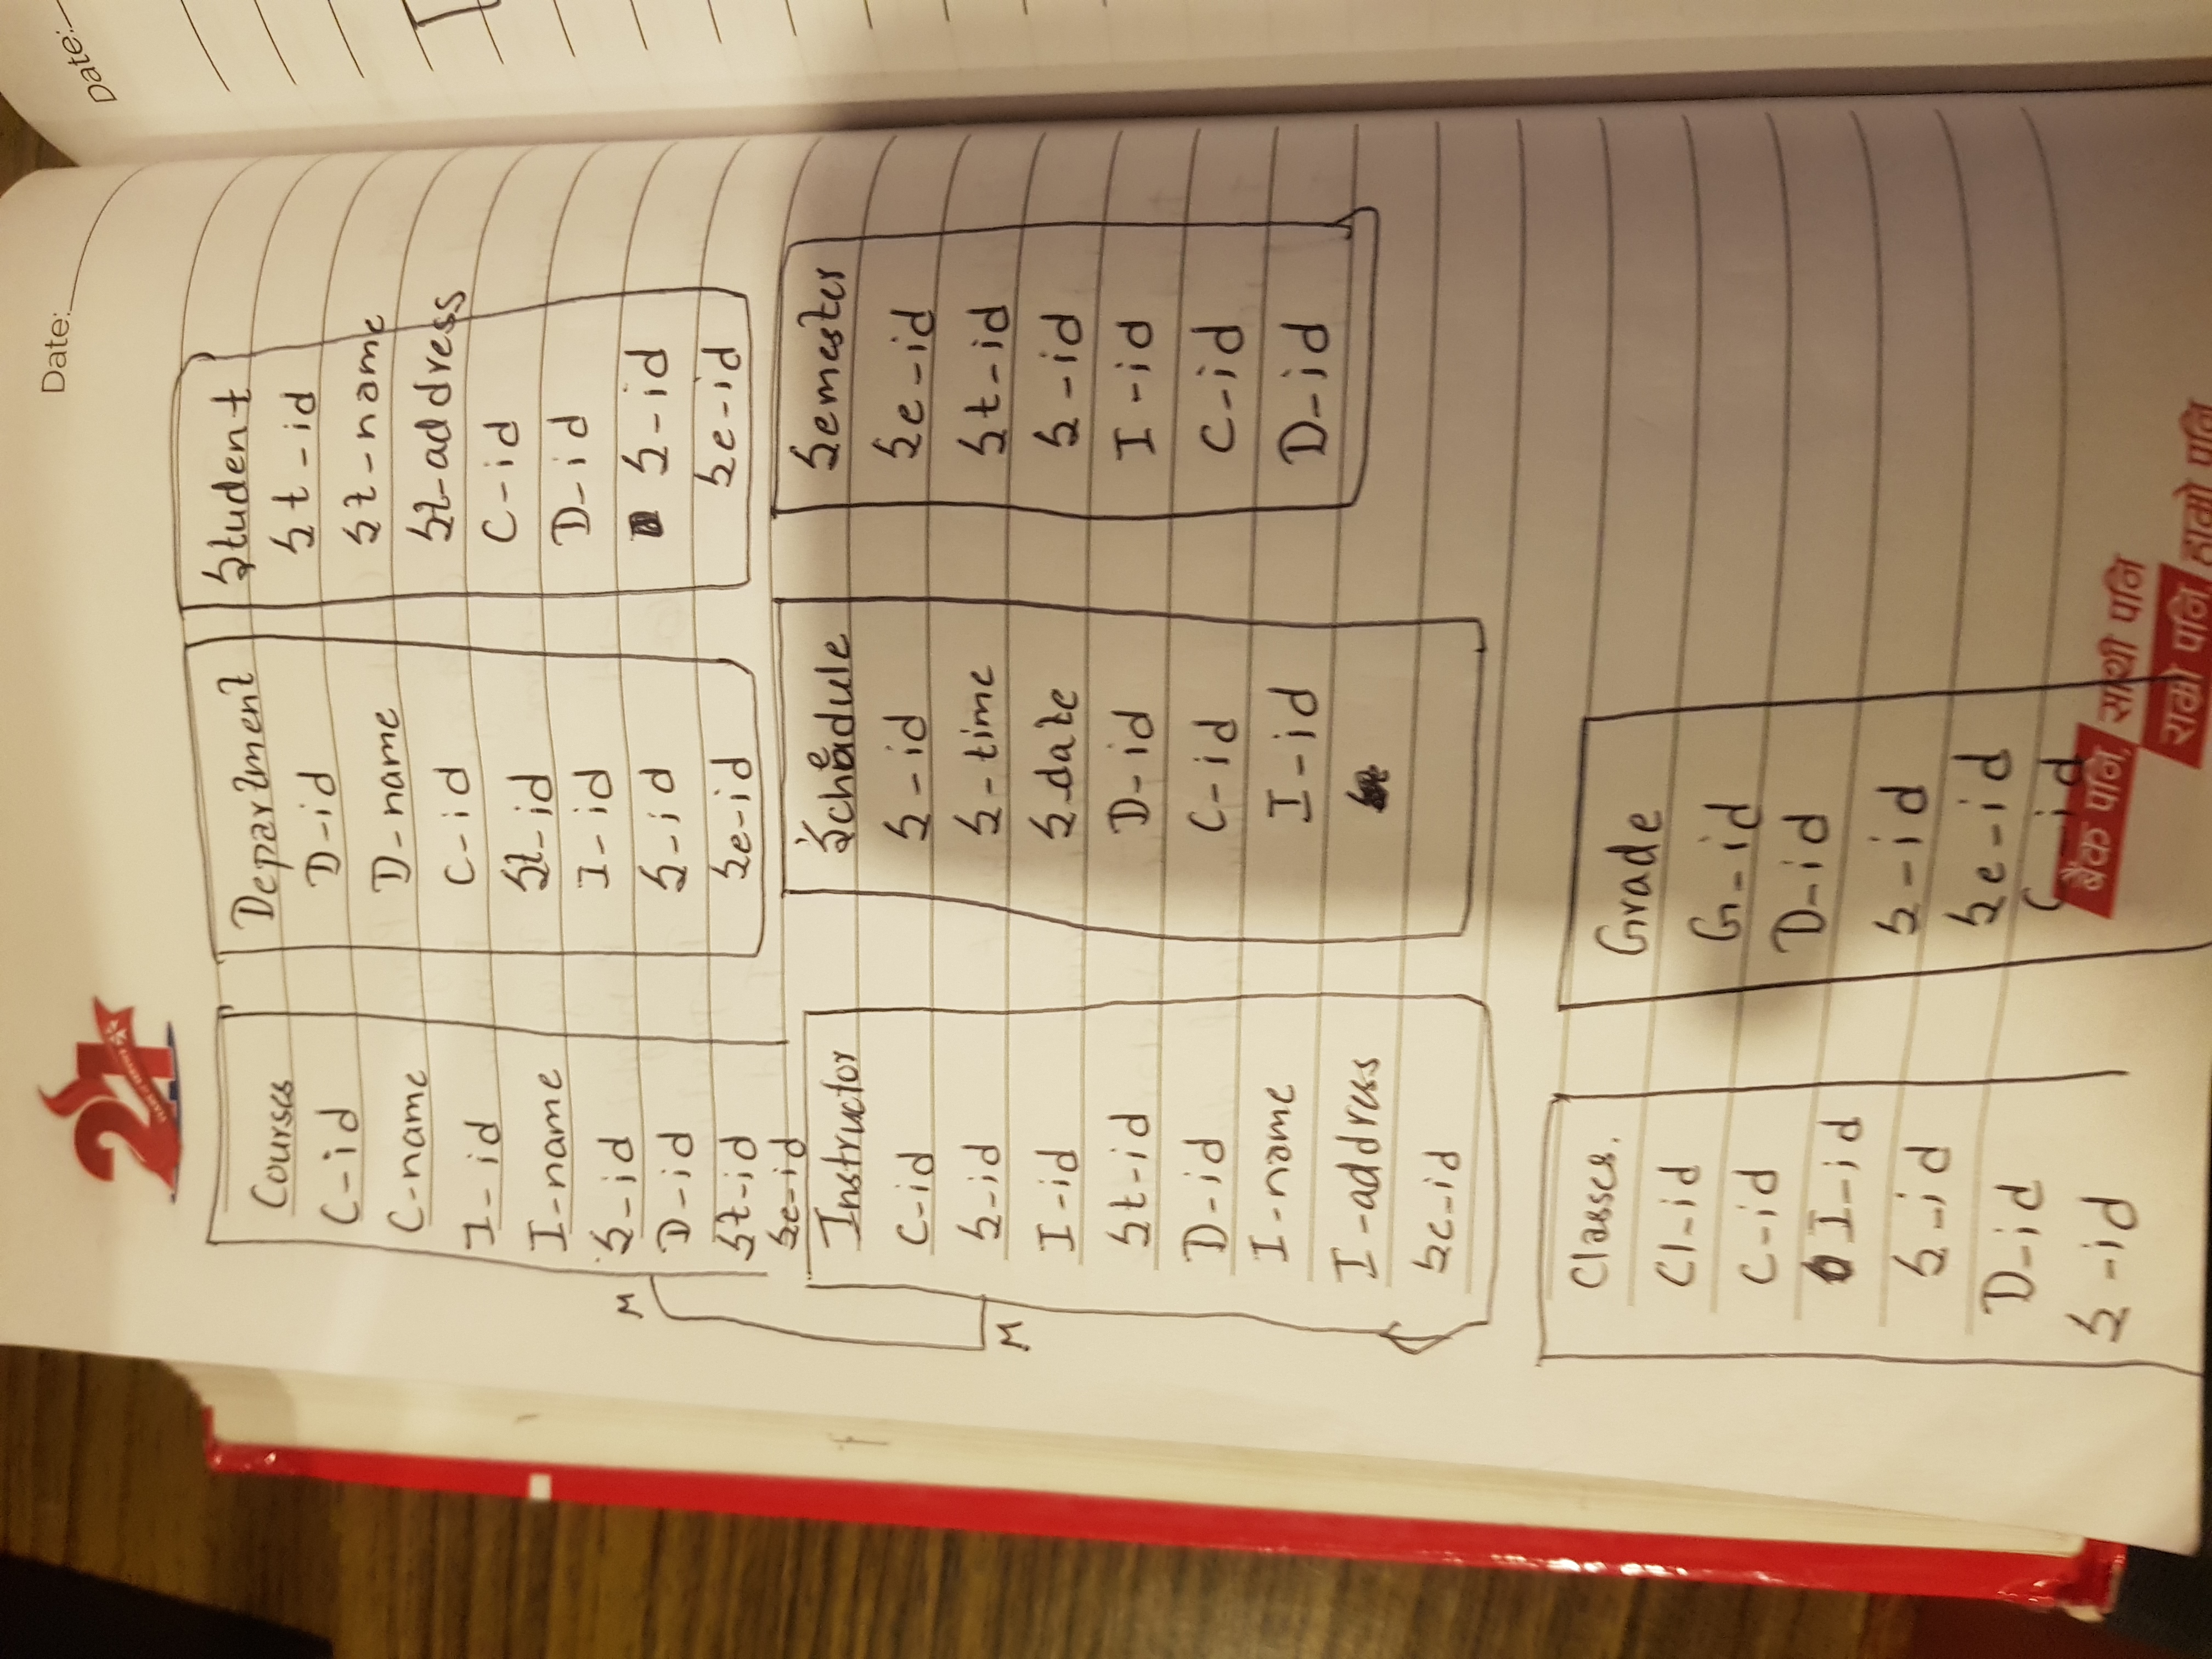 21
YEARS of SERVICE
Date:
Date:
Courses
C-id
C-name
I-id
I-name
S-id
D-id
St-id
Se-id
Department
D-id
D-name
C-id
St-id
I-id
S-id
Se-id
Student
St-id
St-name
St-address
C-id
D-id
S-id
Se-id
M
M
Instructor
C-id
S-id
I-id
St-id
D-id
I-name
I-address
Se-id
Schedule
S-id
S-time
S-date
D-id
C-id
I-id
Semester
Se-id
St-id
S-id
I-id
C-id
D-id
Classes.
Cl-id
C-id
I-id
S-id
D-id
S-id
Grade
G-id
D-id
S-id
Se-id
C-id
बैंक पनि, साथी पनि
राम्रो पनि हाम्रो पनि